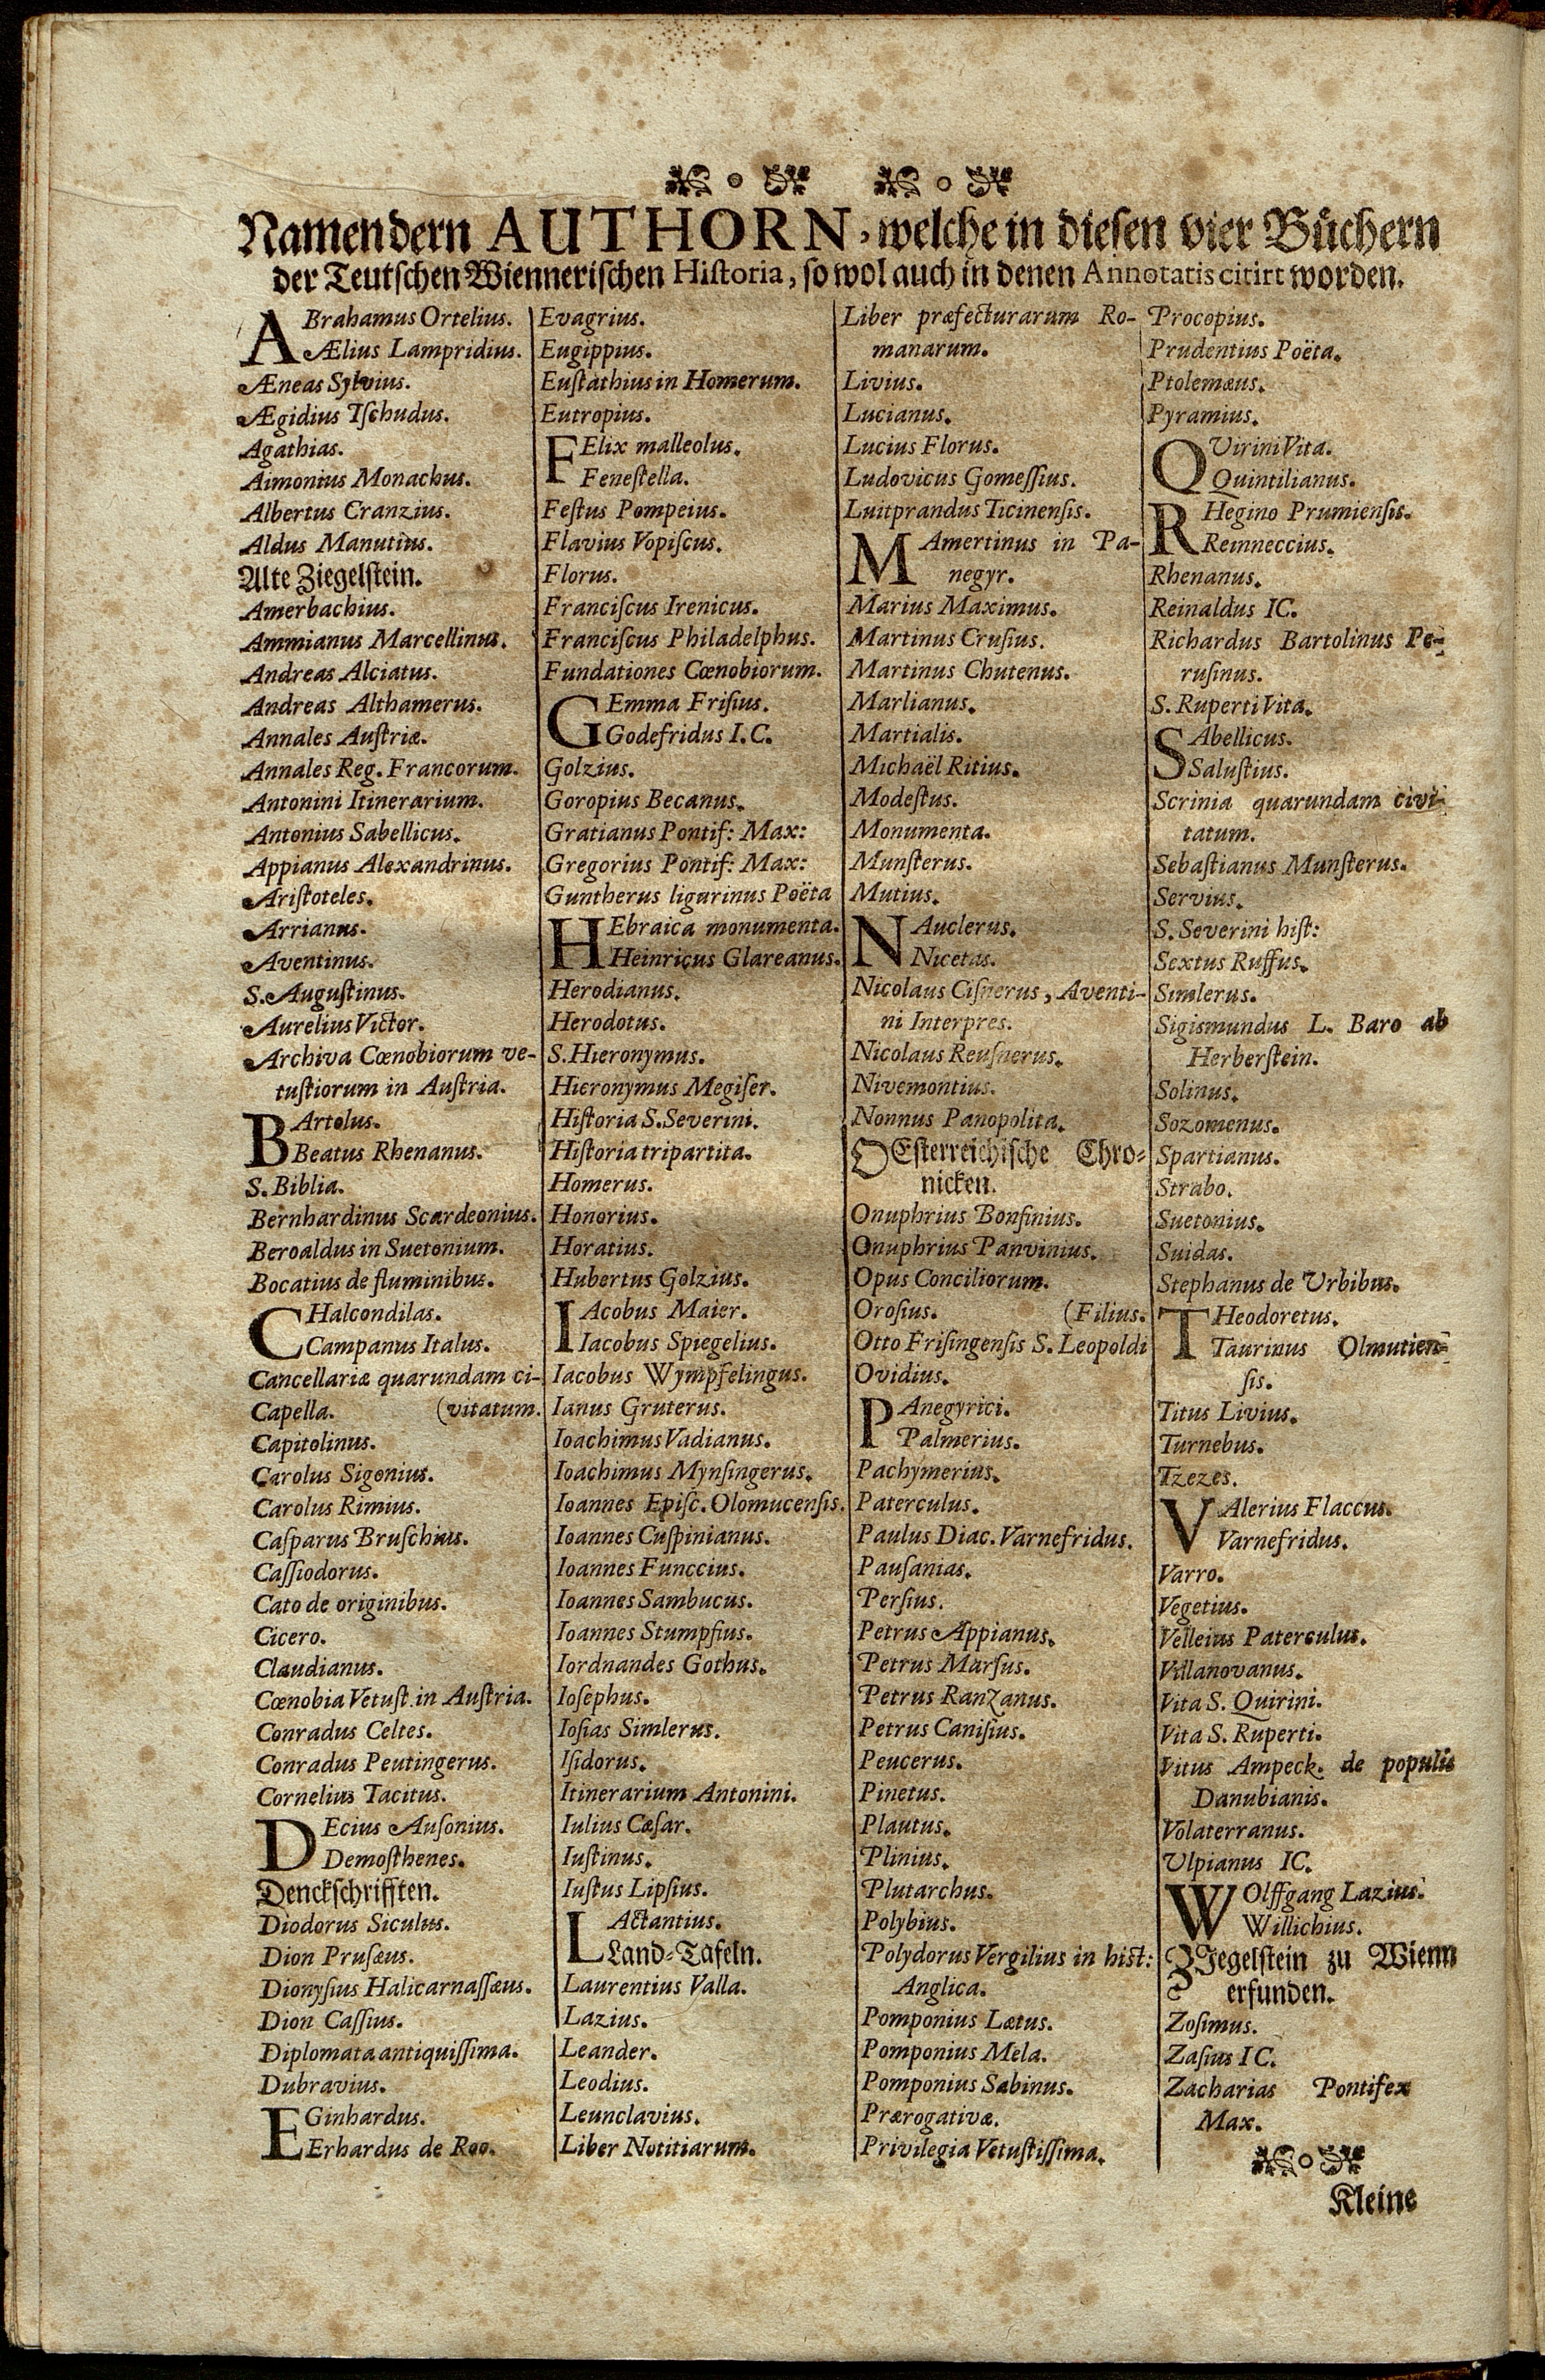 Namen dern AUTHORN, welche in diesen vier Büchern
der Teutschen Wiennerischen Historia, so wol auch in denen Annotatis citirt worden.
ABrahamus Ortelius.
Ælius Lampridius.
Æneas Sylvius.
Ægidius Tſchudus.
Agathias.
Aimonius Monachus.
Albertus Cranzius.
Aldus Manutius.
Alte Ziegelſtein.
Amerbachius.
Ammianus Marcellinus.
Andreas Alciatus.
Andreas Althamerus.
Annales Auſtriæ.
Annales Reg. Francorum.
Antonini Itinerarium.
Antonius Sabellicus.
Appianus Alexandrinus.
Ariſtoteles.
Arrianus.
Aventinus.
S. Auguſtinus.
Aurelius Victor.
Archiva Cœnobiorum ve-
tuſtiorum in Auſtria.
BArtolus.
Beatus Rhenanus.
S. Biblia.
Bernhardinus Scardeonius.
Beroaldus in Suetonium.
Bocatius de fluminibus.
CHalcondilas.
Campanus Italus.
Cancellariæ quarundam ci-
Capella. (vitatum.
Capitolinus.
Carolus Sigonius.
Carolus Rimius.
Caſparus Bruſchius.
Caſſiodorus.
Cato de originibus.
Cicero.
Claudianus.
Cœnobia Vetuſt. in Auſtria.
Conradus Celtes.
Conradus Peutingerus.
Cornelius Tacitus.
DEcius Auſonius.
Demoſthenes.
Denckſchrifften.
Diodorus Siculus.
Dion Pruſæus.
Dionyſius Halicarnaſſæus.
Dion Caſſius.
Diplomata antiquiſſima.
Dubravius.
EGinhardus.
Erhardus de Roo.
Evagrius.
Eugippius.
Euſtathius in Homerum.
Eutropius.
FElix malleolus.
Feneſtella.
Feſtus Pompeius.
Flavius Vopiſcus.
Florus.
Franciſcus Irenicus.
Franciſcus Philadelphus.
Fundationes Cœnobiorum.
GEmma Friſius.
Godefridus I.C.
Golzius.
Goropius Becanus.
Gratianus Pontif: Max:
Gregorius Pontif: Max:
Guntherus ligurinus Poëta
HEbraica monumenta.
Heinricus Glareanus.
Herodianus.
Herodotus.
S. Hieronymus.
Hieronymus Megiſer.
Hiſtoria S. Severini.
Hiſtoria tripartita.
Homerus.
Honorius.
Horatius.
Hubertus Golzius.
IAcobus Maier.
Iacobus Spiegelius.
Iacobus Wympfelingus.
Ianus Gruterus.
Ioachimus Vadianus.
Ioachimus Mynſingerus.
Ioannes Epiſc. Olomucenſis.
Ioannes Cuſpinianus.
Ioannes Funccius.
Ioannes Sambucus.
Ioannes Stumpfius.
Iordnandes Gothus.
Ioſephus.
Ioſias Simlerus.
Iſidorus.
Itinerarium Antonini.
Iulius Cæſar.
Iuſtinus.
Iuſtus Lipſius.
LActantius.
Land-Tafeln.
Laurentius Valla.
Lazius.
Leander.
Leodius.
Leunclavius.
Liber Notitiarum.
Liber præfecturarum Ro-
manarum.
Livius.
Lucianus.
Lucius Florus.
Ludovicus Gomeſſius.
Luitprandus Ticinenſis.
MAmertinus in Pa-
negyr.
Marius Maximus.
Martinus Cruſius.
Martinus Chutenus.
Marlianus.
Martialis.
Michaël Ritius.
Modeſtus.
Monumenta.
Munſterus.
Mutius.
NAuclerus.
Nicetas.
Nicolaus Ciſnerus, Aventi-
ni Interpres.
Nicolaus Reuſnerus.
Nivemontius.
Nonnus Panopolita.
OEſterreichiſche Chro-
nicken.
Onuphrius Bonfinius.
Onuphrius Panvinius.
Opus Conciliorum.
Oroſius. (Filius.
Otto Friſingenſis S. Leopoldi
Ovidius.
PAnegyrici.
Palmerius.
Pachymerius.
Paterculus.
Paulus Diac. Varnefridus.
Pauſanias.
Perſius.
Petrus Appianus.
Petrus Marſus.
Petrus Ranzanus.
Petrus Caniſius.
Peucerus.
Pinetus.
Plautus.
Plinius.
Plutarchus.
Polybius.
Polydorus Vergilius in hist:
Anglica.
Pomponius Lætus.
Pomponius Mela.
Pomponius Sabinus.
Prærogativæ.
Privilegia Vetuſtiſſima.
Procopius.
Prudentius Poëta.
Ptolemæus.
Pyramius.
QUirini Vita.
Quintilianus.
RHegino Prumienſis.
Reinneccius.
Rhenanus.
Reinaldus IC.
Richardus Bartolinus Pe-
ruſinus.
S. Ruperti Vita.
SAbellicus.
Saluſtius.
Scrinia quarundam civi-
tatum.
Sebaſtianus Munſterus.
Servius.
S. Severini hiſt:
Sextus Ruffus.
Simlerus.
Sigismundus L. Baro ab
Herberſtein.
Solinus.
Sozomenus.
Spartianus.
Strabo.
Suetonius.
Suidas.
Stephanus de Urbibus.
THeodoretus.
Taurinus Olmutien-
ſis.
Titus Livius.
Turnebus.
Tzezes.
VAlerius Flaccus.
Varnefridus.
Varro.
Vegetius.
Velleius Paterculus.
Villanovanus.
Vita S. Quirini.
Vita S. Ruperti.
Vitus Ampeck. de populis
Danubianis.
Volaterranus.
Ulpianus IC.
WOlffgang Lazius.
Willichius.
ZIegelſtein zu Wienn
erfunden.
Zoſimus.
Zaſius IC.
Zacharias Pontifex
Max.
Kleine